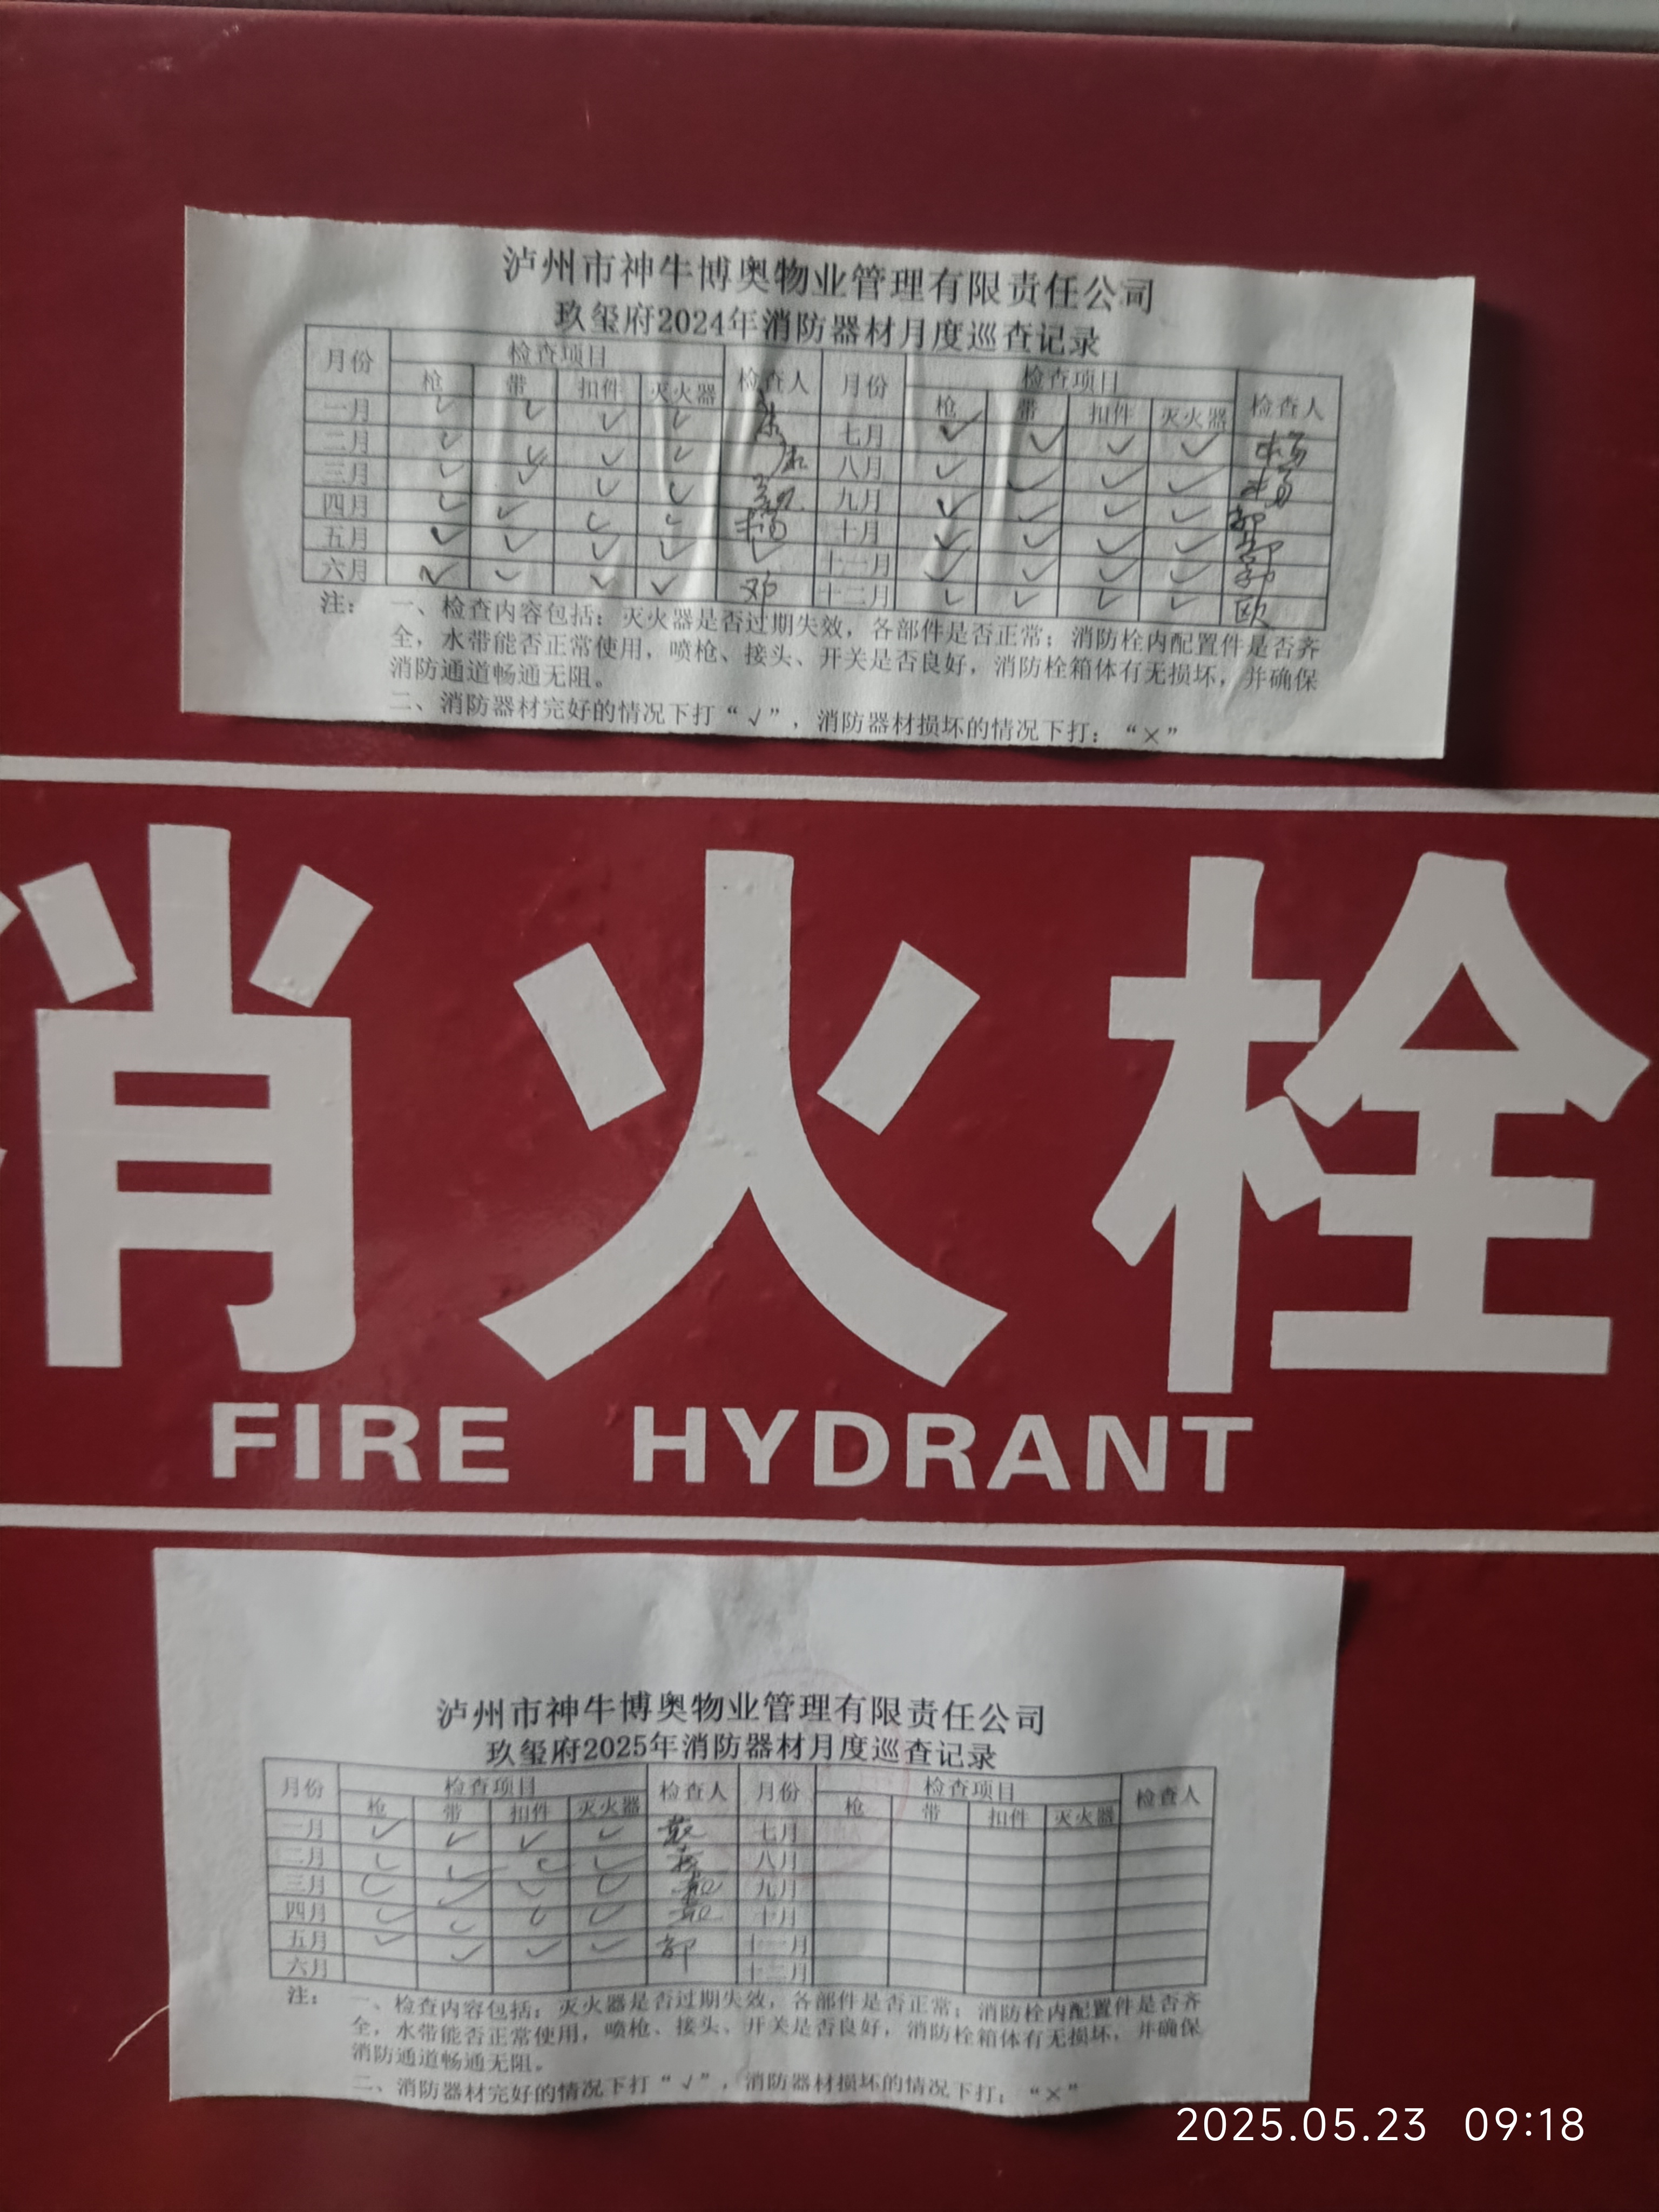 泸州市神牛博奥物业管理有限责任公司
玖玺府2024年消防器材月度巡查记录
月份 检查项目 检查人 月份 检查项目 检查人
枪 带 扣件 灭火器 枪 带 扣件 灭火器
一月 ✓ ✓ ✓ ✓ 七月 ✓ ✓ ✓ ✓ 杨
二月 ✓ ✓ ✓ ✓ 八月 ✓ ✓ ✓ ✓ 杨
三月 ✓ ✓ ✓ ✓ 九月 ✓ ✓ ✓ ✓
四月 ✓ ✓ ✓ ✓ 杨 十月 ✓ ✓ ✓ ✓
五月 ✓ ✓ ✓ ✓ ✓ 十一月 ✓ ✓ ✓ ✓
六月 ✓ ✓ ✓ ✓ 邓 十二月 ✓ ✓ ✓ ✓ 欧
注： 一、检查内容包括：灭火器是否过期失效，各部件是否正常；消防栓内配置件是否齐
全，水带能否正常使用，喷枪、接头、开关是否良好，消防栓箱体有无损坏，并确保
消防通道畅通无阻。
二、消防器材完好的情况下打“√”，消防器材损坏的情况下打：“×”
消火栓
FIRE HYDRANT
泸州市神牛博奥物业管理有限责任公司
玖玺府2025年消防器材月度巡查记录
月份 检查项目 检查人 月份 检查项目 检查人
枪 带 扣件 灭火器 枪 带 扣件 灭火器
一月 ✓ ✓ ✓ ✓ 七月
二月 ✓ ✓ ✓ ✓ 八月
三月 ✓ ✓ ✓ ✓ 九月
四月 ✓ ✓ ✓ ✓ 十月
五月 ✓ ✓ ✓ ✓ 十一月
六月 十二月
注： 一、检查内容包括：灭火器是否过期失效，各部件是否正常；消防栓内配置件是否齐
全，水带能否正常使用，喷枪、接头、开关是否良好，消防栓箱体有无损坏，并确保
消防通道畅通无阻。
二、消防器材完好的情况下打“√”，消防器材损坏的情况下打：“×”
2025.05.23 09:18